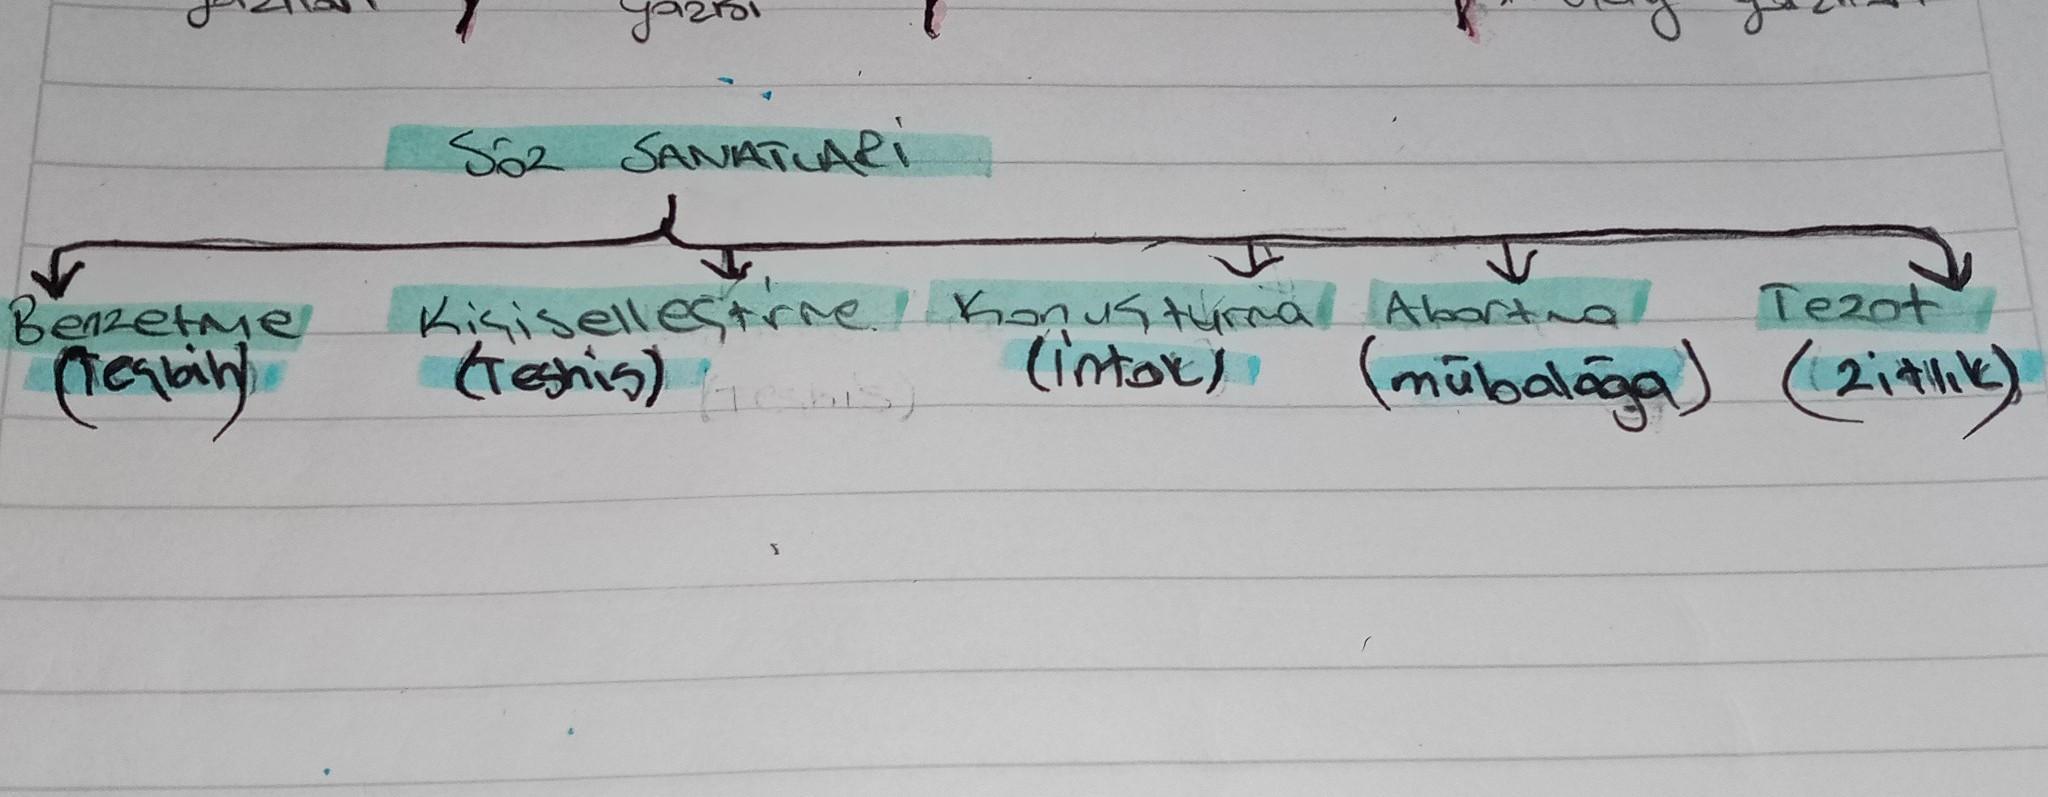 yazıları yazısı yazıları
SÖZ SANATLARI
Benzetme Kişiselleştirme Konuşturma Abartma Tezat
(Teşbih) (Teşhis) (İntak) (mübalağa) (zıtlık)